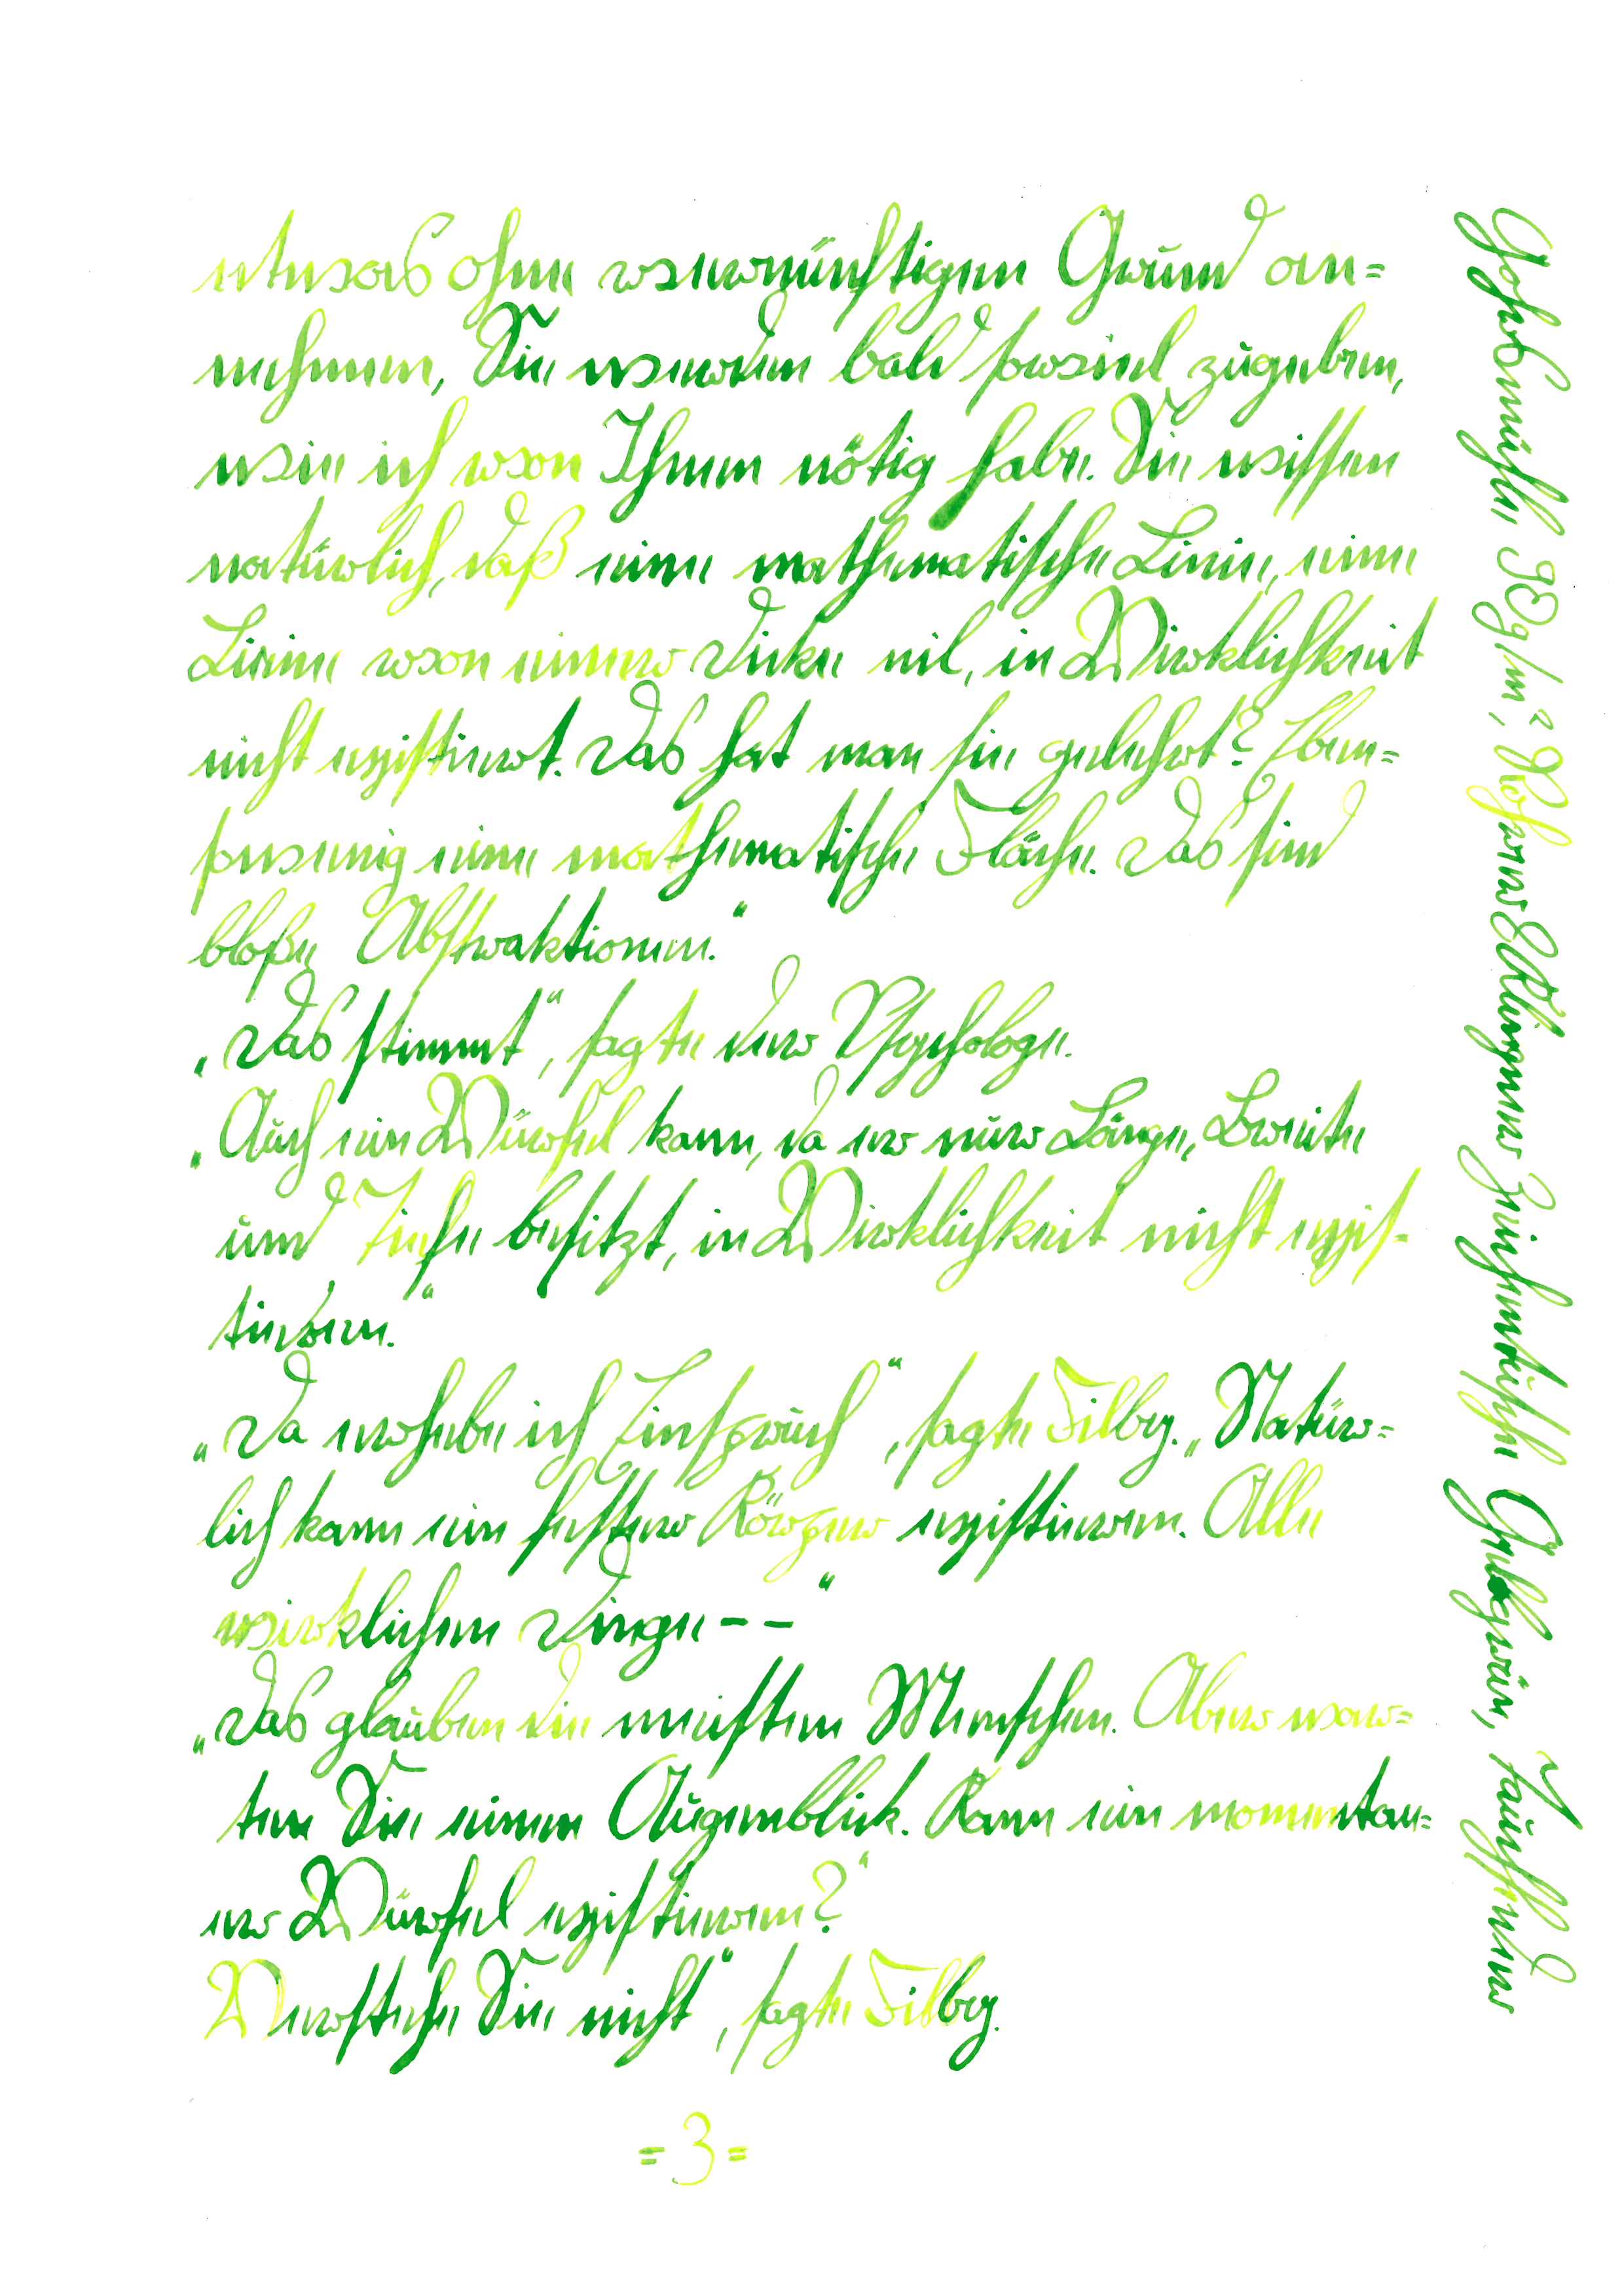 etwas ohne vernünftigen Grund an=
nehmen, Sie werden bald soviel zugeben,
wie ich von Ihnen nötig habe. Sie wissen
natürlich, daß eine mathematische Linie, eine
Linie von einer Dicke nil, in Wirklichkeit
nicht existiert. Das hat man sie gelehrt? Eben=
sowenig eine mathematische Fläche. Das sind
bloße Abstraktionen."
„Das stimmt", sagte der Psychologe.
„Auch ein Würfel kann, da er nur Länge, Breite
und Tiefe besitzt, in Wirklichkeit nicht exis=
tieren."
„Da erhebe ich Einspruch", sagte Filby. „Natür=
lich kann ein fester Körper existieren. Alle
wirklichen Dinge--"
„Das glauben die meisten Menschen. Aber war=
ten Sie einen Augenblick. Kann ein momentan=
er Würfel existieren?"
Verstehe Sie nicht", sagte Filby.
=3=
90g/m², Rohrer&Klingner Zeichentusche Gelbgrün,